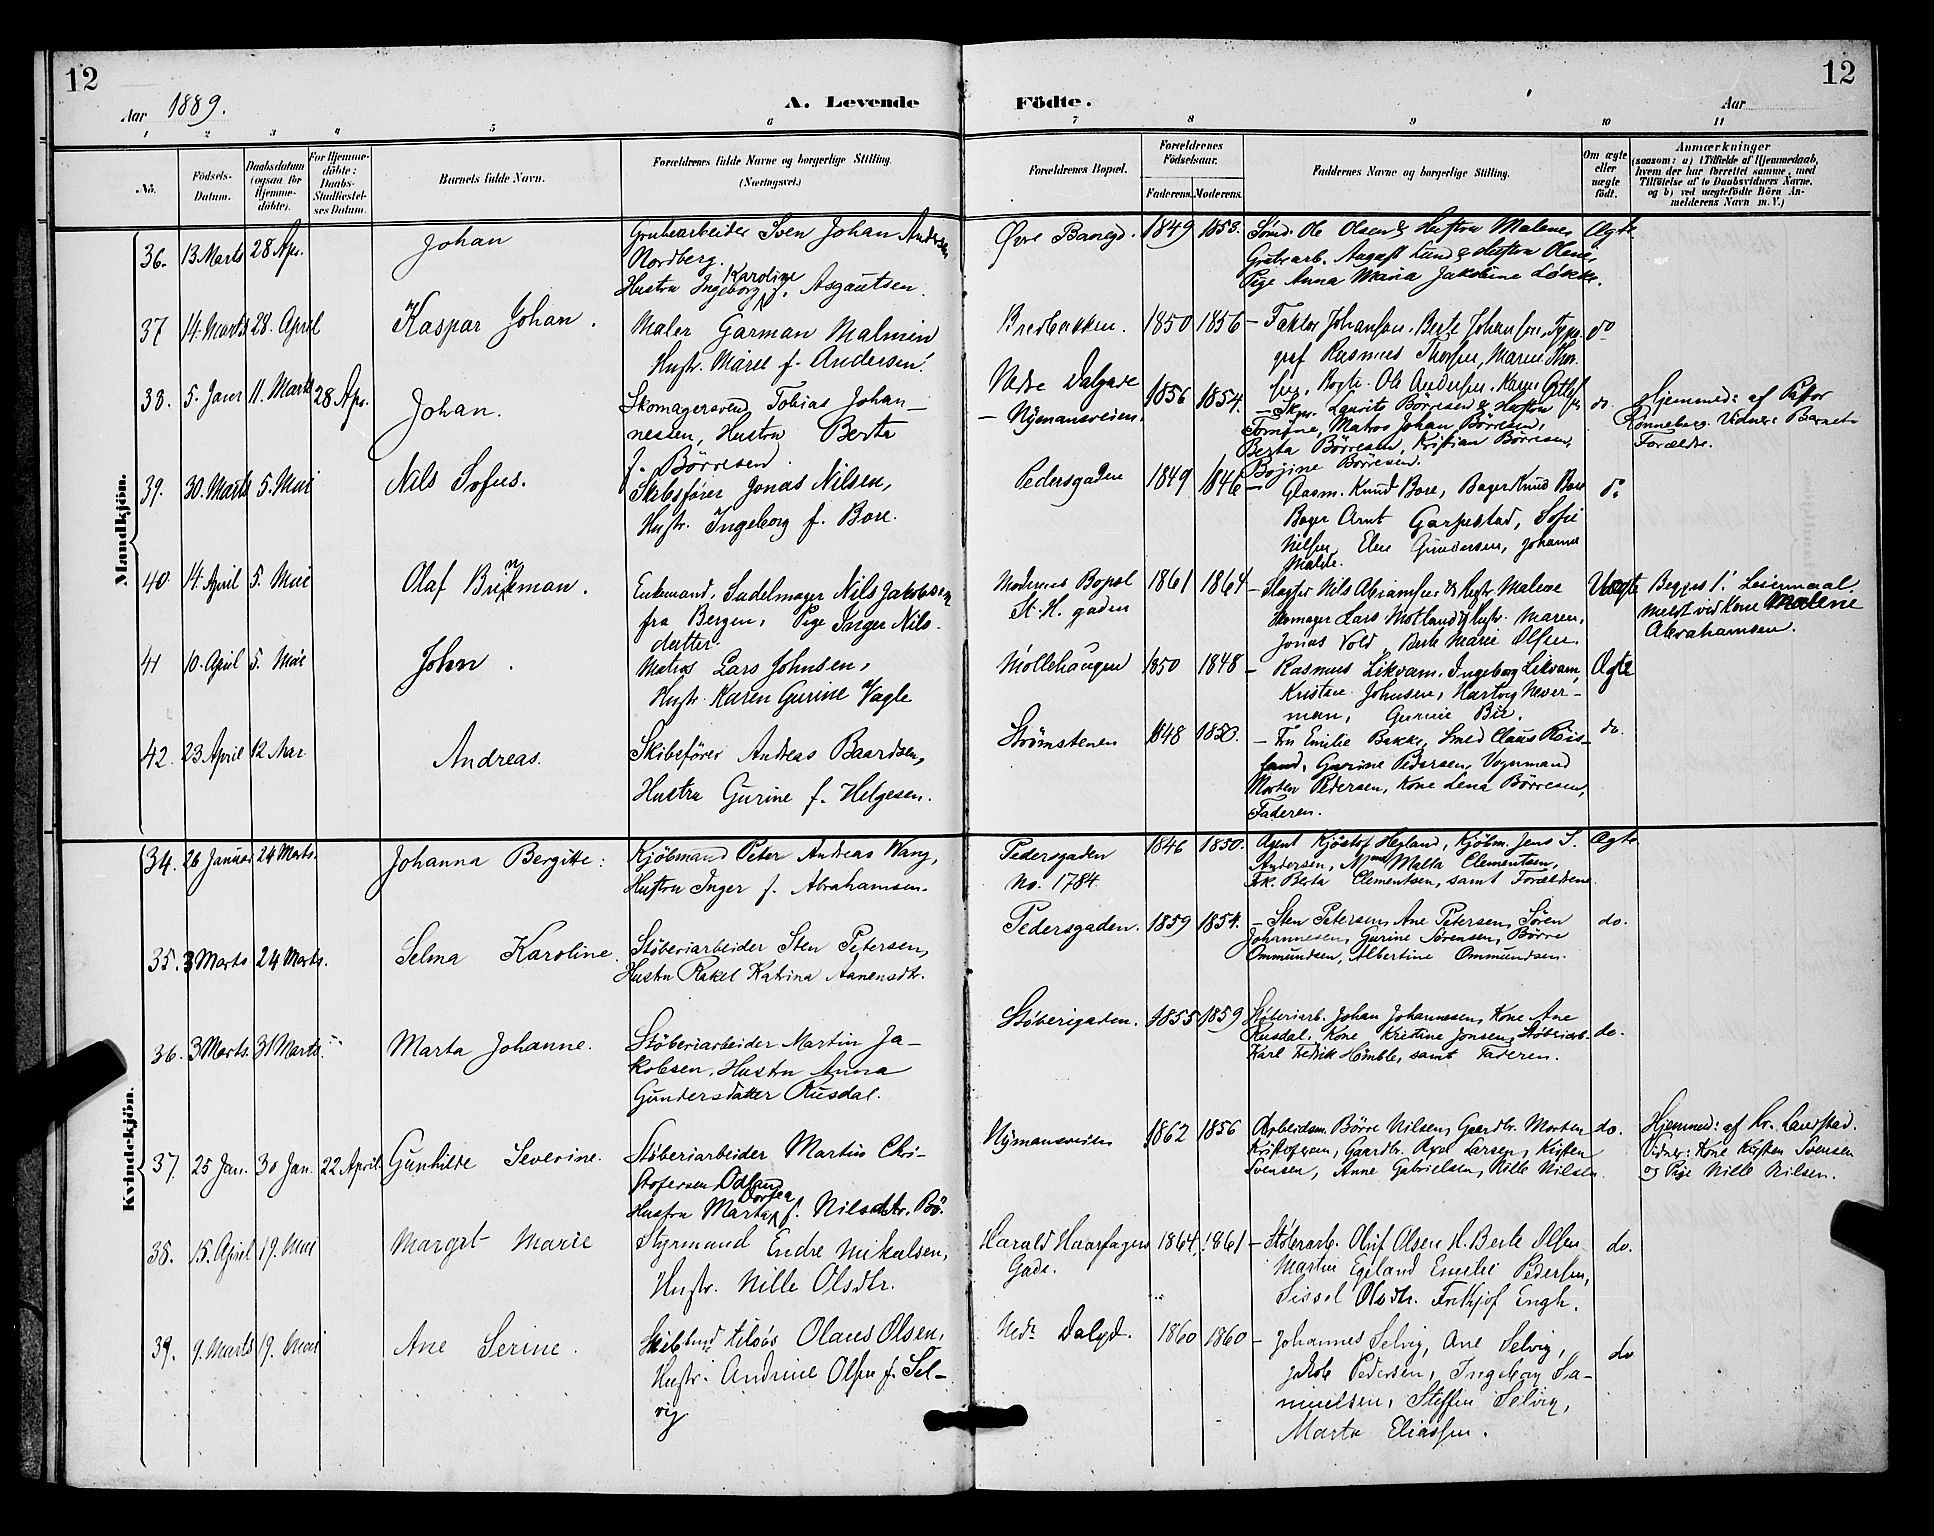 12
12
Aar 1889.
A. Levende Födte.
Aar
1 2 3 4 5 6 7 8 9 10 11
No.
Födsels-Datum.
Daabsdatum (ogsaa for Hjemme-döbte).
For Hjemme-döbte: Daabs-Stadfæstel-ses Datum.
Barnets fulde Navn.
Forældrenes fulde Navne og borgerlige Stilling. (Næringsvei.)
Forældrenes Bopæl.
Forældrenes Födselsaar.
Faderens. Moderens.
Faddernes Navne og borgerlige Stilling.
Om ægte eller uægte födt.
Anmærkninger
(saasom: a) i Tilfælde af Hjemmedaab,
hvem der har forrettet samme, med
Tilföielse af to Daabsvidners Navne.
og b) ved uægtefödte Börn An-
melderens Navn m. V.)
Mandkjön.
36. 13 Marts 28 Apr. Johan
Grubearbeider Sven Johan Andersen
Nordberg.
Hustru Ingeborg Karoline f. Asgautsen.
Øvre Banegd. 1849 1853.
Sömd. Ole Olsen & Hustru Malene,
Grubearb. August Lund & Hustru Olene,
Pige Anna Maria Jakobine Løkke.
Ægte
37 14. Marts 28. April Kaspar Johan.
Maler Garman Malmin
Hustr. Marie f. Andersen.
Bredbakken. 1850 1856
– Faktor Johansen. Berte Johansen, Typo
graf Rasmus Thorsen, Maren Thor
sen, Bogtr. Ole Andersen. Karen
do
38. 5. Janr 11. Marts 28 Apr. Johan.
Skomagersvend Tobias Johan-
nessen, Hustru Berta
f. Börresen.
Nedre Dalgade
– Nymansveien. 1856 1854.
– Skpr. Laurits Börresen & Hustru
Tomine, Matros Johan Börresen,
Berta Börresen, Kristian Börresen,
Bojine Börresen.
do.
Hjemmed: af Pastor
Rönneberg. Vidner: Barnets
Forældre.
39. 30. Marts 5. Mai Nils Sofus.
Skibsförer Jonas Nilsen,
Hustr. Ingeborg f. Bore.
Pedersgaden 1849 1846
– Glasm. Knud Bore, Bager Knud Bore
Bager Arnt Garpestad, Sofie
Nilsen, Elen Gundersen, Johanne
Malde.
do
40. 14. April 5. Mai Olaf Brinkman.
Enkemand, Sadelmager Nils Jakobsen
fra Bergen, Pige Inger Nils-
datter
Moderens Bopæl
St. H. gaden 1861 1864
– Slagter Nils Abramsen & Hustr. Malene
Lars Motland & Hustr. Maren,
Jonas Vold, Berte Marie Olsen.
Uægte
Begges 1' Leiermaal.
meldt ved Kone Malene
Abrahamsen.
41 10. April 5. Mai John.
Matros Lars Johnsen,
Hustr. Karen Gurine Vagle
Möllehaugen 1850 1848
– Rasmus Likvam, Ingeborg Likvam,
Kristine Johnsen, Hartvig Never-
man, Gurine Bie.
Ægte
42. 23 April 12 Mai Andreas.
Skibsförer Andreas Baardsen,
Hustru Gurine f. Helgesen.
Strömstenen 1848 1850.
– Fru Emilie Bakke, Smed Claus Röis-
land, Gurine Pedersen, Vognmand
Morten Pedersen, Kone Lena Börresen,
Faderen.
do.
Kvindekjön.
34. 26 Januar 24 Marts. Johanna Bergitte.
Kjöbmand Peter Andreas Wang,
Hustru Inger f. Abrahamsen.
Pedersgaden
No. 1784. 1846 1850.
Agent Kjöstof Hegland, Kjöbm. Jens S.
Andersen, Mad Malla Clementsen,
Frk. Berta Clementsen, samt Forældrene.
Ægte
35. 3 Marts 24 Marts. Selma Karoline.
Stöberiarbeider Sten Petersen,
Hustru Rakel Katrina Aanensdtr.
Pedersgaden. 1859 1854.
– Sten Petersen, Ane Petersen, Sören
Johannesen, Gurine Sörensen, Börre
Ommundsen, Albertine Ommundsen.
do.
36. 3 Marts. 31 Marts. Marta Johanne.
Stöberiarbeider Martin Ja-
kobsen, Hustru Anna
Gundersdatter Rusdal.
Stöberigaden. 1855 1859
Stöberiarb. Johan Johannesen, Kone Ane
Rusdal, Kone Kristine Jonsen, Stöberiarb.
Karl Fedrik Hömble, samt Faderen.
do.
37. 25 Jan. 30 Jan. 22 April. Gunhilde Severine.
Stöberiarbeider Martin Chri-
stofersen Odland
Hustru Marta Dorfea f. Nilsdtr. Bö.
Nymansveien 1862 1856
Arbeidsm. Börre Nilsen, Gaardbr. Morten
Kristofersen, Gaardbr. Axel Larsen, Kirsten
Svensen, Anne Gabrielsen, Nille Nilsen.
do.
Hjemmed: af Hr. Landstad.
Vidner: Kone Kirsten Svensen
og Pige Nille Nilsen.
38. 15. April 19. Mai Margrt Marie
Styrmand Endre Mikalsen,
Hustr. Nille Olsdtr.
Harald Haarfagers
Gade. 1864 1861
– Stöberarb. Oluf Olsen H. Berte Olsen
Martin Egeland Emilie Pedersen,
Sissel Olsdtr. Fritjof Engh.
do.
39. 9. Marts 19. Mai Ane Serine.
Olaus Olsen,
Hustr. Andrine Olsen f. Sel-
vig
Nedr Dalgd. 1860 1860
– Johannes Selvig, Ane Selvig,
Jakob Pedersen, Ingeborg Sa-
muelsen, Steffen Selvig,
Marta Eliassen.
do